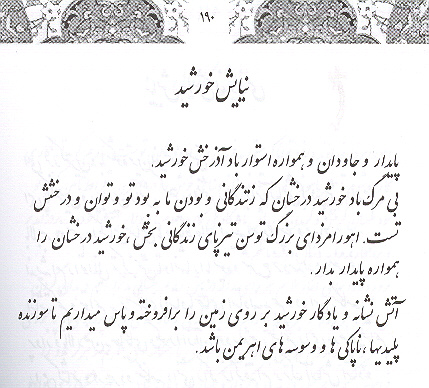 ۱۹۰
نیایش خورشید
پایدار و جاودان و همواره استوار باد آذرخش خورشید.
بی مرگ باد خورشید درخشان که زندگانی و بودن ما به بود تو و توان و درخشش
تست. اهورامزدای بزرگ توسن تیزپای زندگانی بخش، خورشید درخشان را
همواره پایدار بدار.
آتش نشانه و یادگار خورشید بر روی زمین را برافروخته و پاس میداریم تا سوزنده
پلیدیها، ناپاکی ها و وسوسه های اهریمن باشد.